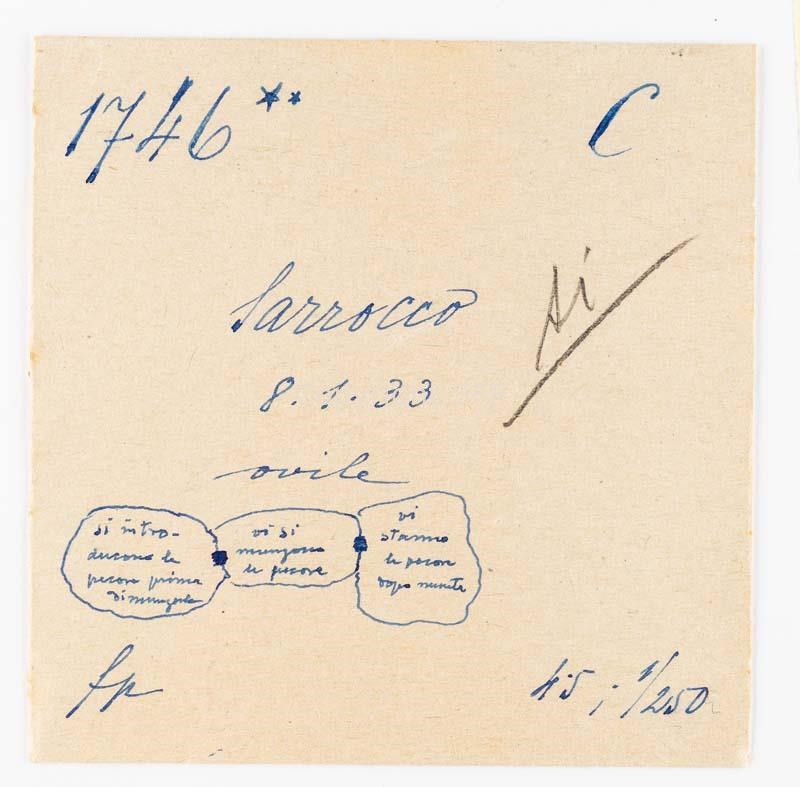 1746**
C
Sarrocco
si
8.1.33
ovile
si intro-
ducono le
pecore prima
di mungerle
vi si
mungono
le pecore
vi
stanno
le pecore
dopo munte
fp
45; 1/250